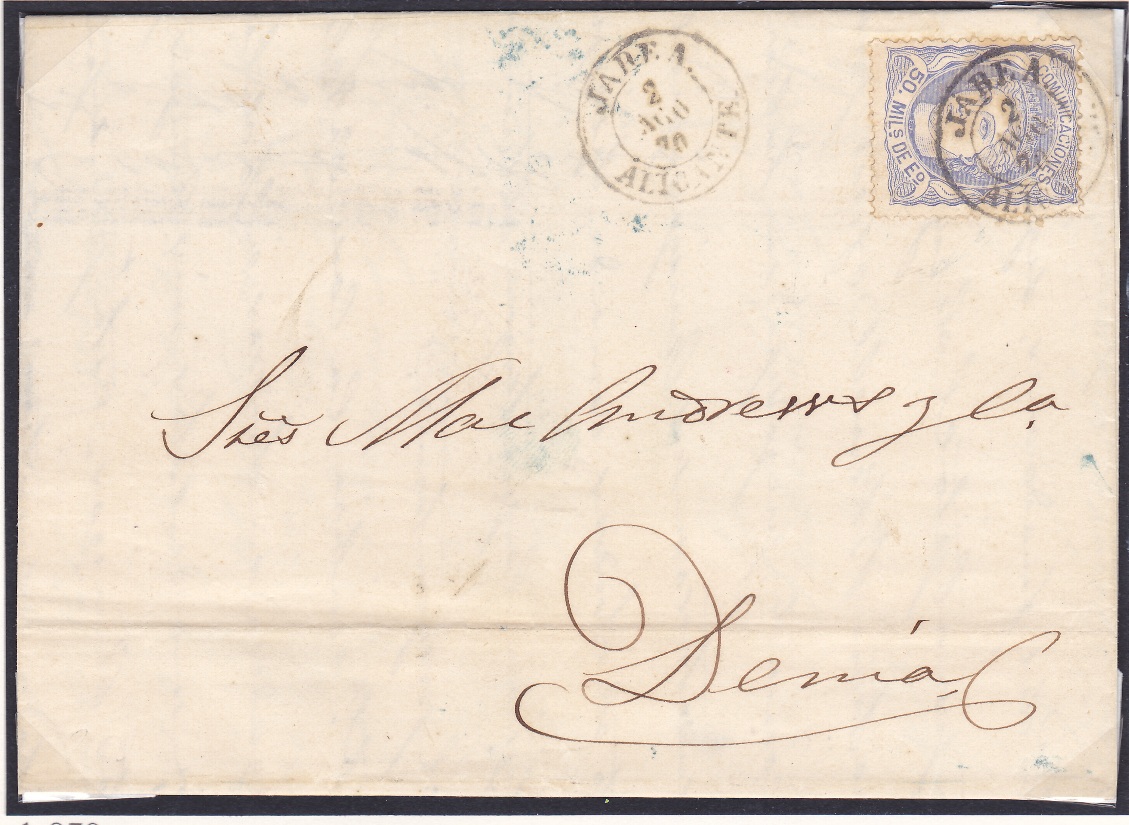 JABEA.
2
AGO
70
ALICANTE.
COMUNICACIONES
50. MILS. DE Eº
JABEA
2
AGO
ALI
Sres Mac Andrews y Ca.
Denia